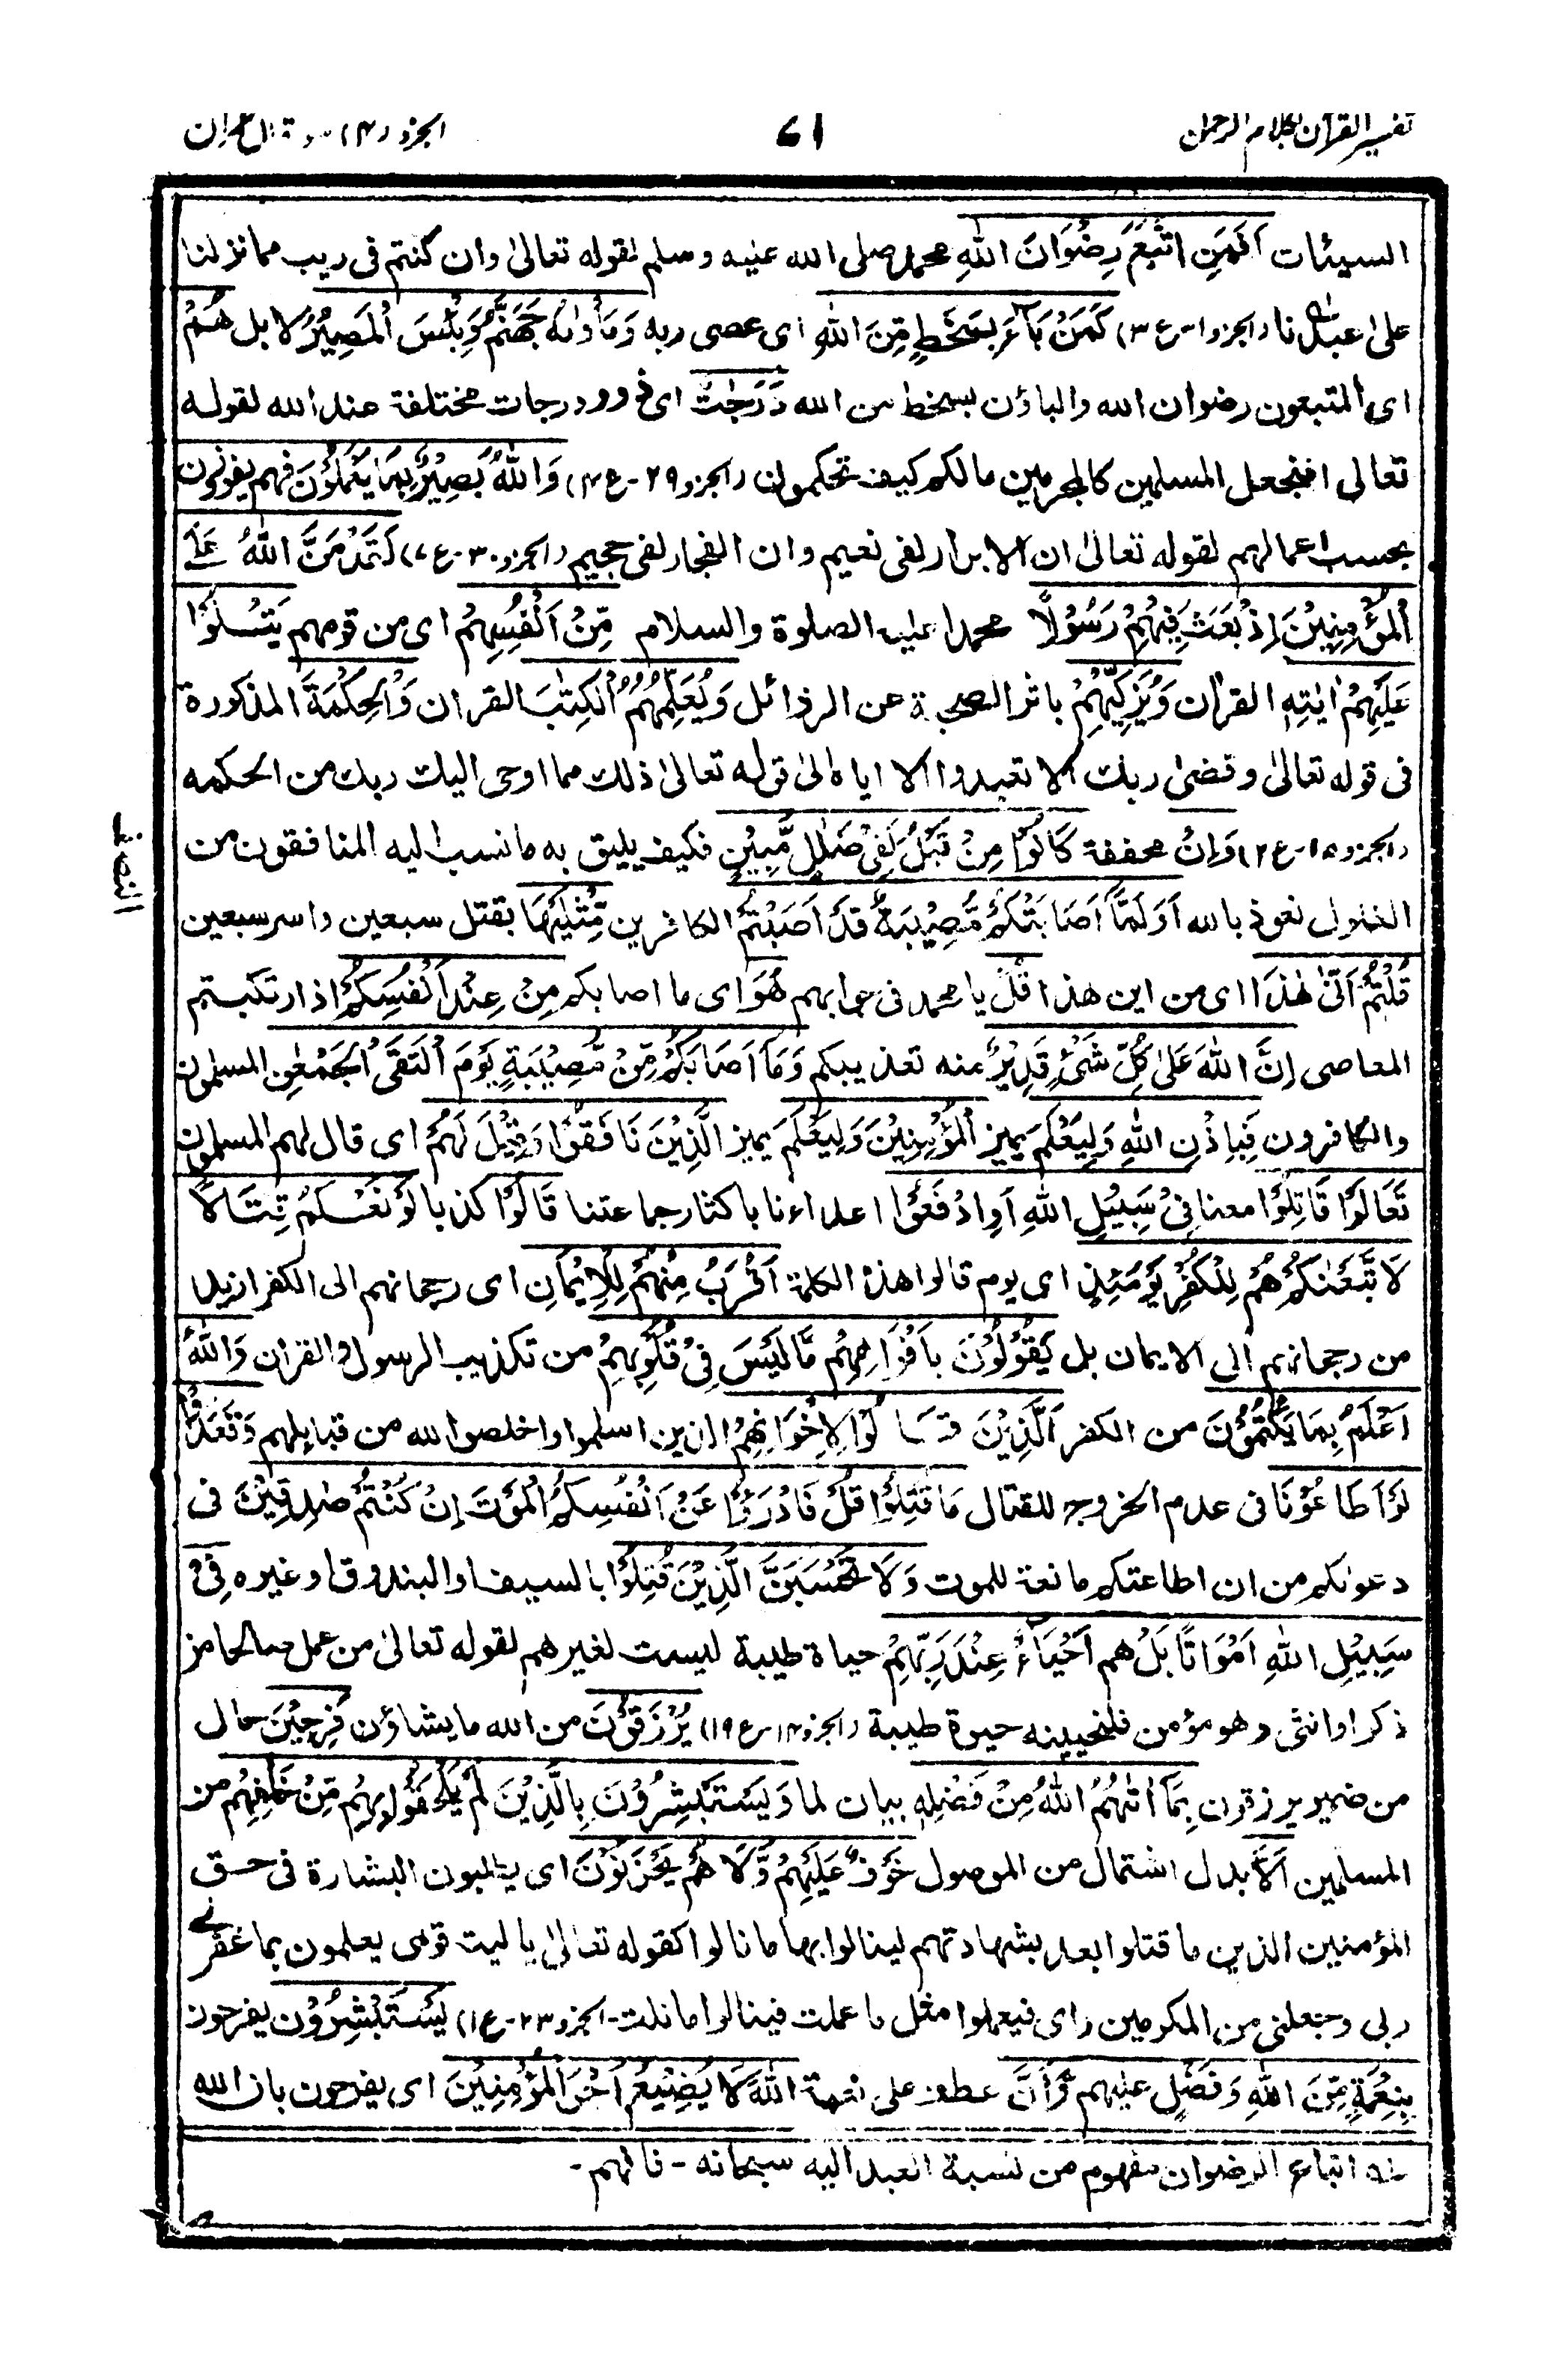 تفسير القرآن بكلام الرحمن
٦١
الجزو (٤) سورة ال عمران
السيئات اَفَمَنِ اتَّبَعَ رِضْوَانَ اللّٰهِ محمد صلى الله عليه وسلم لقوله تعالىٰ وان كنتم فى ريب مما نزلنا
علىٰ عبدنا (الجزو ١-ع ٣) كَمَنْ بَآءَ بِسَخَطٍ مِّنَ اللّٰهِ اى عصى ربه وَمَأْوٰىهُ جَهَنَّمُ وَبِئْسَ الْمَصِيْرُ لا بل هُمْ
اى المتبعون رضوان الله والباؤن بسخط من الله دَرَجٰتٌ اى ذوو درجات مختلفة عند الله لقوله
تعالى افنجعل المسلمين كالمجرمين مالكم كيف تحكمون (الجزو ٢٩-ع ٤) وَاللّٰهُ بَصِيْرٌۢ بِمَا يَعْمَلُوْنَ فهم يفوزون
بحسب اعمالهم لقوله تعالىٰ ان الابرار لفى نعيم وان الفجار لفى جحيم (الجزو ٣٠-ع ٧) لَقَدْ مَنَّ اللّٰهُ عَلَى
الْمُؤْمِنِيْنَ اِذْ بَعَثَ فِيْهِمْ رَسُوْلًا محمدا عليه الصلوة والسلام مِّنْ اَنْفُسِهِمْ اى من قومهم يَتْلُوْا
عَلَيْهِمْ اٰيٰتِهٖ القراٰن وَيُزَكِّيْهِمْ باثر الصحبة عن الرذائل وَيُعَلِّمُهُمُ الْكِتٰبَ القران وَالْحِكْمَةَ المذكورة
فى قوله تعالىٰ وقضىٰ ربك الا تعبدوا الا اياه الىٰ قوله تعالىٰ ذلك مما اوحى اليك ربك من الحكمه
(الجزو ١٥-ع ٢) وَاِنْ مخففة كَانُوْا مِنْ قَبْلُ لَفِىْ ضَلٰلٍ مُّبِيْنٍ فكيف يليق به ما نسب اليه المنافقون من
الغلول نعوذ بالله اَوَلَمَّآ اَصَابَتْكُمْ مُّصِيْبَةٌ قَدْ اَصَبْتُمْ الكافرين مِّثْلَيْهَا بقتل سبعين واسر سبعين
قُلْتُمْ اَنّٰى هٰذَا اى من اين هذا قُلْ يا محمد فى جوابهم هُوَ اى ما اصابكم مِنْ عِنْدِ اَنْفُسِكُمْ اذ ارتكبتم
المعاصى اِنَّ اللّٰهَ عَلٰى كُلِّ شَىْءٍ قَدِيْرٌ منه تعذيبكم وَمَآ اَصَابَكُمْ مِّنْ مُّصِيْبَةٍ يَوْمَ الْتَقَى الْجَمْعٰنِ المسلمون
والكافرون فَبِاِذْنِ اللّٰهِ وَلِيَعْلَمَ يميز الْمُؤْمِنِيْنَ وَلِيَعْلَمَ يميز الَّذِيْنَ نَافَقُوْا وَقِيْلَ لَهُمْ اى قال لهم المسلمون
تَعَالَوْا قَاتِلُوْا معنا فِىْ سَبِيْلِ اللّٰهِ اَوِ ادْفَعُوْا اعداءنا باكثار جماعتنا قَالُوْا كذبا لَوْ نَعْلَمُ قِتَالًا
لَا تَّبَعْنٰكُمْ هُمْ لِلْكُفْرِ يَوْمَئِذٍ اى يوم قالوا هذه الكلمة اَقْرَبُ مِنْهُمْ لِلْاِيْمَانِ اى رجحانهم الى الكفر ازيد
من رجحانهم الى الايمان بل يَقُوْلُوْنَ بِاَفْوَاهِهِمْ مَّا لَيْسَ فِىْ قُلُوْبِهِمْ من تكذيب الرسول والقران وَاللّٰهُ
اَعْلَمُ بِمَا يَكْتُمُوْنَ من الكفر اَلَّذِيْنَ قَالُوْا لِاِخْوَانِهِمْ الذين اسلموا واخلصوا لله من قبايلهم وَقَعَدُوْا
لَوْ اَطَاعُوْنَا فى عدم الخروج للقتال مَا قُتِلُوْا قُلْ فَادْرَءُوْا عَنْ اَنْفُسِكُمُ الْمَوْتَ اِنْ كُنْتُمْ صٰدِقِيْنَ فى
دعوٰىكم من ان اطاعتكم مانعة للموت وَلَا تَحْسَبَنَّ الَّذِيْنَ قُتِلُوْا بالسيف او البندوق او غيره فِىْ
سَبِيْلِ اللّٰهِ اَمْوَاتًا بَلْ هم اَحْيَآءٌ عِنْدَ رَبِّهِمْ حياة طيبة ليست لغيرهم لقوله تعالىٰ من عمل صالحا من
ذكر او انثى وهو مؤمن فلنحيينه حيوة طيبة (الجزو ١٤-ع ١٩) يُرْزَقُوْنَ من الله ما يشاؤن فَرِحِيْنَ حال
من ضمير يرزقون بِمَآ اٰتٰهُمُ اللّٰهُ مِنْ فَضْلِهٖ بيان لما وَيَسْتَبْشِرُوْنَ بِالَّذِيْنَ لَمْ يَلْحَقُوْا بِهِمْ مِّنْ خَلْفِهِمْ من
المسلمين اَلَّا بدل اشتمال من الموصول خَوْفٌ عَلَيْهِمْ وَلَا هُمْ يَحْزَنُوْنَ اى يطلبون البشارة فى حق
المؤمنين الذين ما قتلوا بعد بشهادتهم لينالوا بها ما نالوا كقوله تعالىٰ يا ليت قومى يعلمون بما غفر لى
ربى وجعلنى من المكرمين (اى فيعملوا مثل ما عملت فينالوا ما نلت-الجزو ٢٣-ع ١) يَسْتَبْشِرُوْنَ يفرحون
بِنِعْمَةٍ مِّنَ اللّٰهِ وَفَضْلٍ عليهم وَّاَنَّ عطف على نعمة اللّٰهَ لَا يُضِيْعُ اَجْرَ الْمُؤْمِنِيْنَ اى يفرحون بان الله
النصف
له اتباع الرضوان مفهوم من نسبة العبد اليه سبحانه - فافهم -